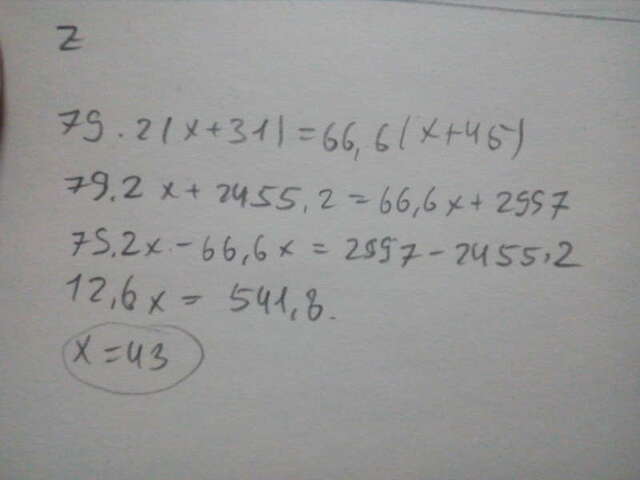 2
79.2(x+31)=66,6(x+45)
79.2x+2455.2=66,6x+2997
79.2x-66,6x=2997-2455.2
12,6x=541,8.
x=43